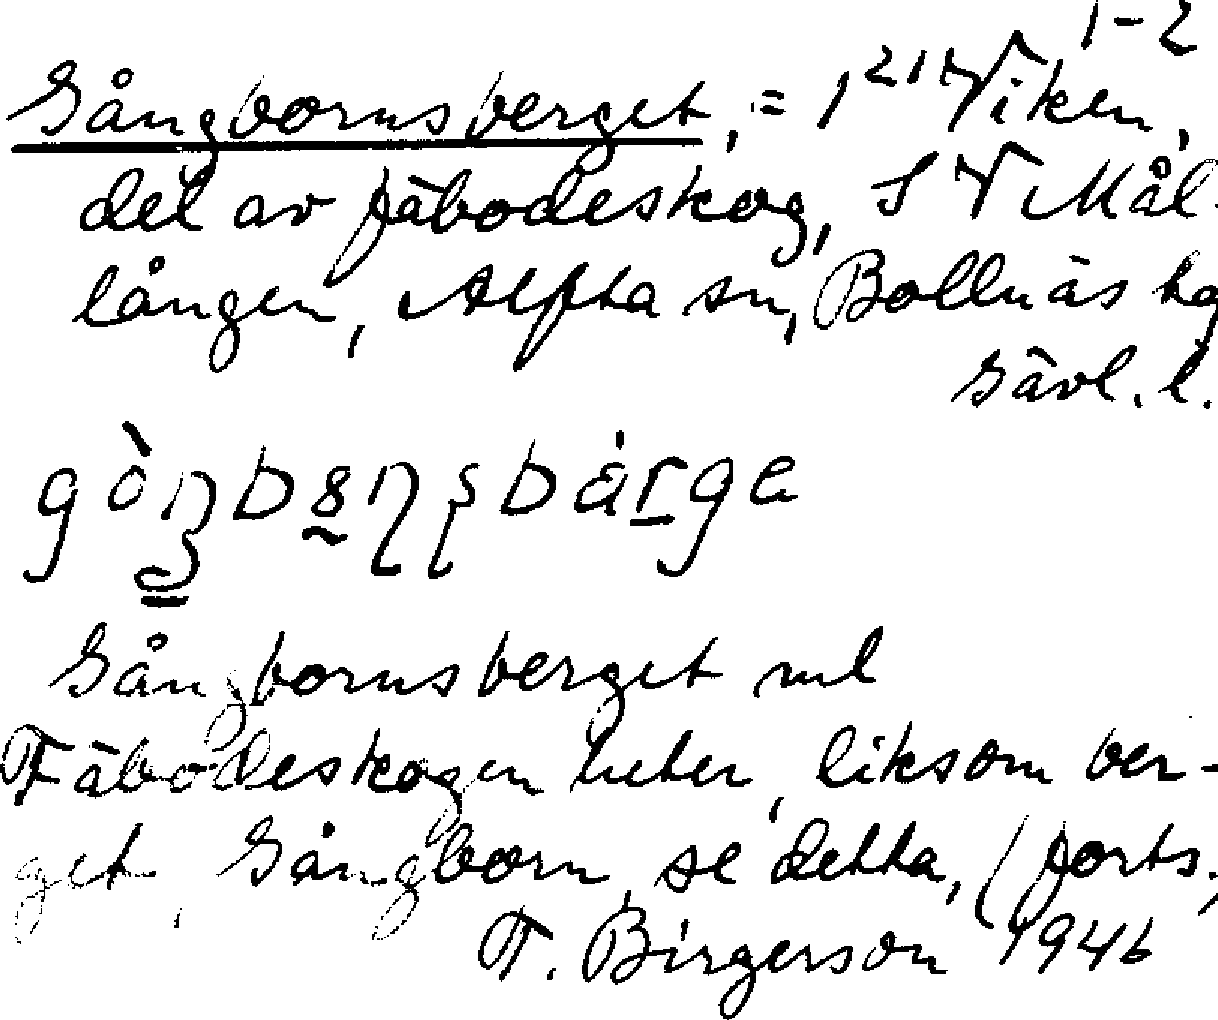 1-2
Gångbornsberget, = 1²¹ Viken,
del av fäbodeskog, S V Mål-
lången, Alfta sn, Bollnäs hg
Gävl. l.
Gångbornsberget ml
Fäbodeskogen heter, liksom ber-
get, Gångborn, se detta, (forts.)
T. Birgerson 1946